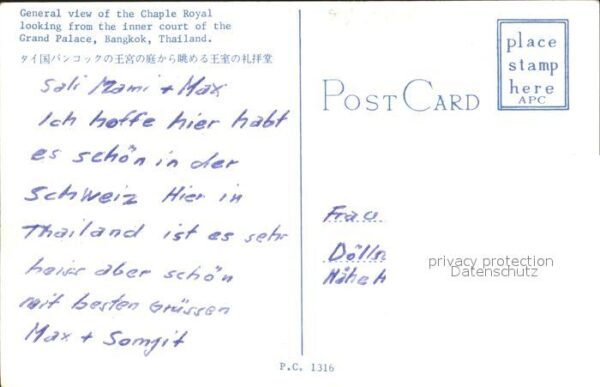 General view of the Chaple Royal
looking from the inner court of the
Grand Palace, Bangkok, Thailand.
タイ国バンコックの王宮の庭から眺める王室の礼拝堂
Sali Mami + Max
Ich hoffe hier habt
es schön in der
Schweiz Hier in
Thailand ist es sehr
heiss aber schön
mit besten Grüssen
Max + Somjit
POST CARD
place
stamp
here
APC
Frau
Dölln
privacy protection
Datenschutz
P.C. 1316